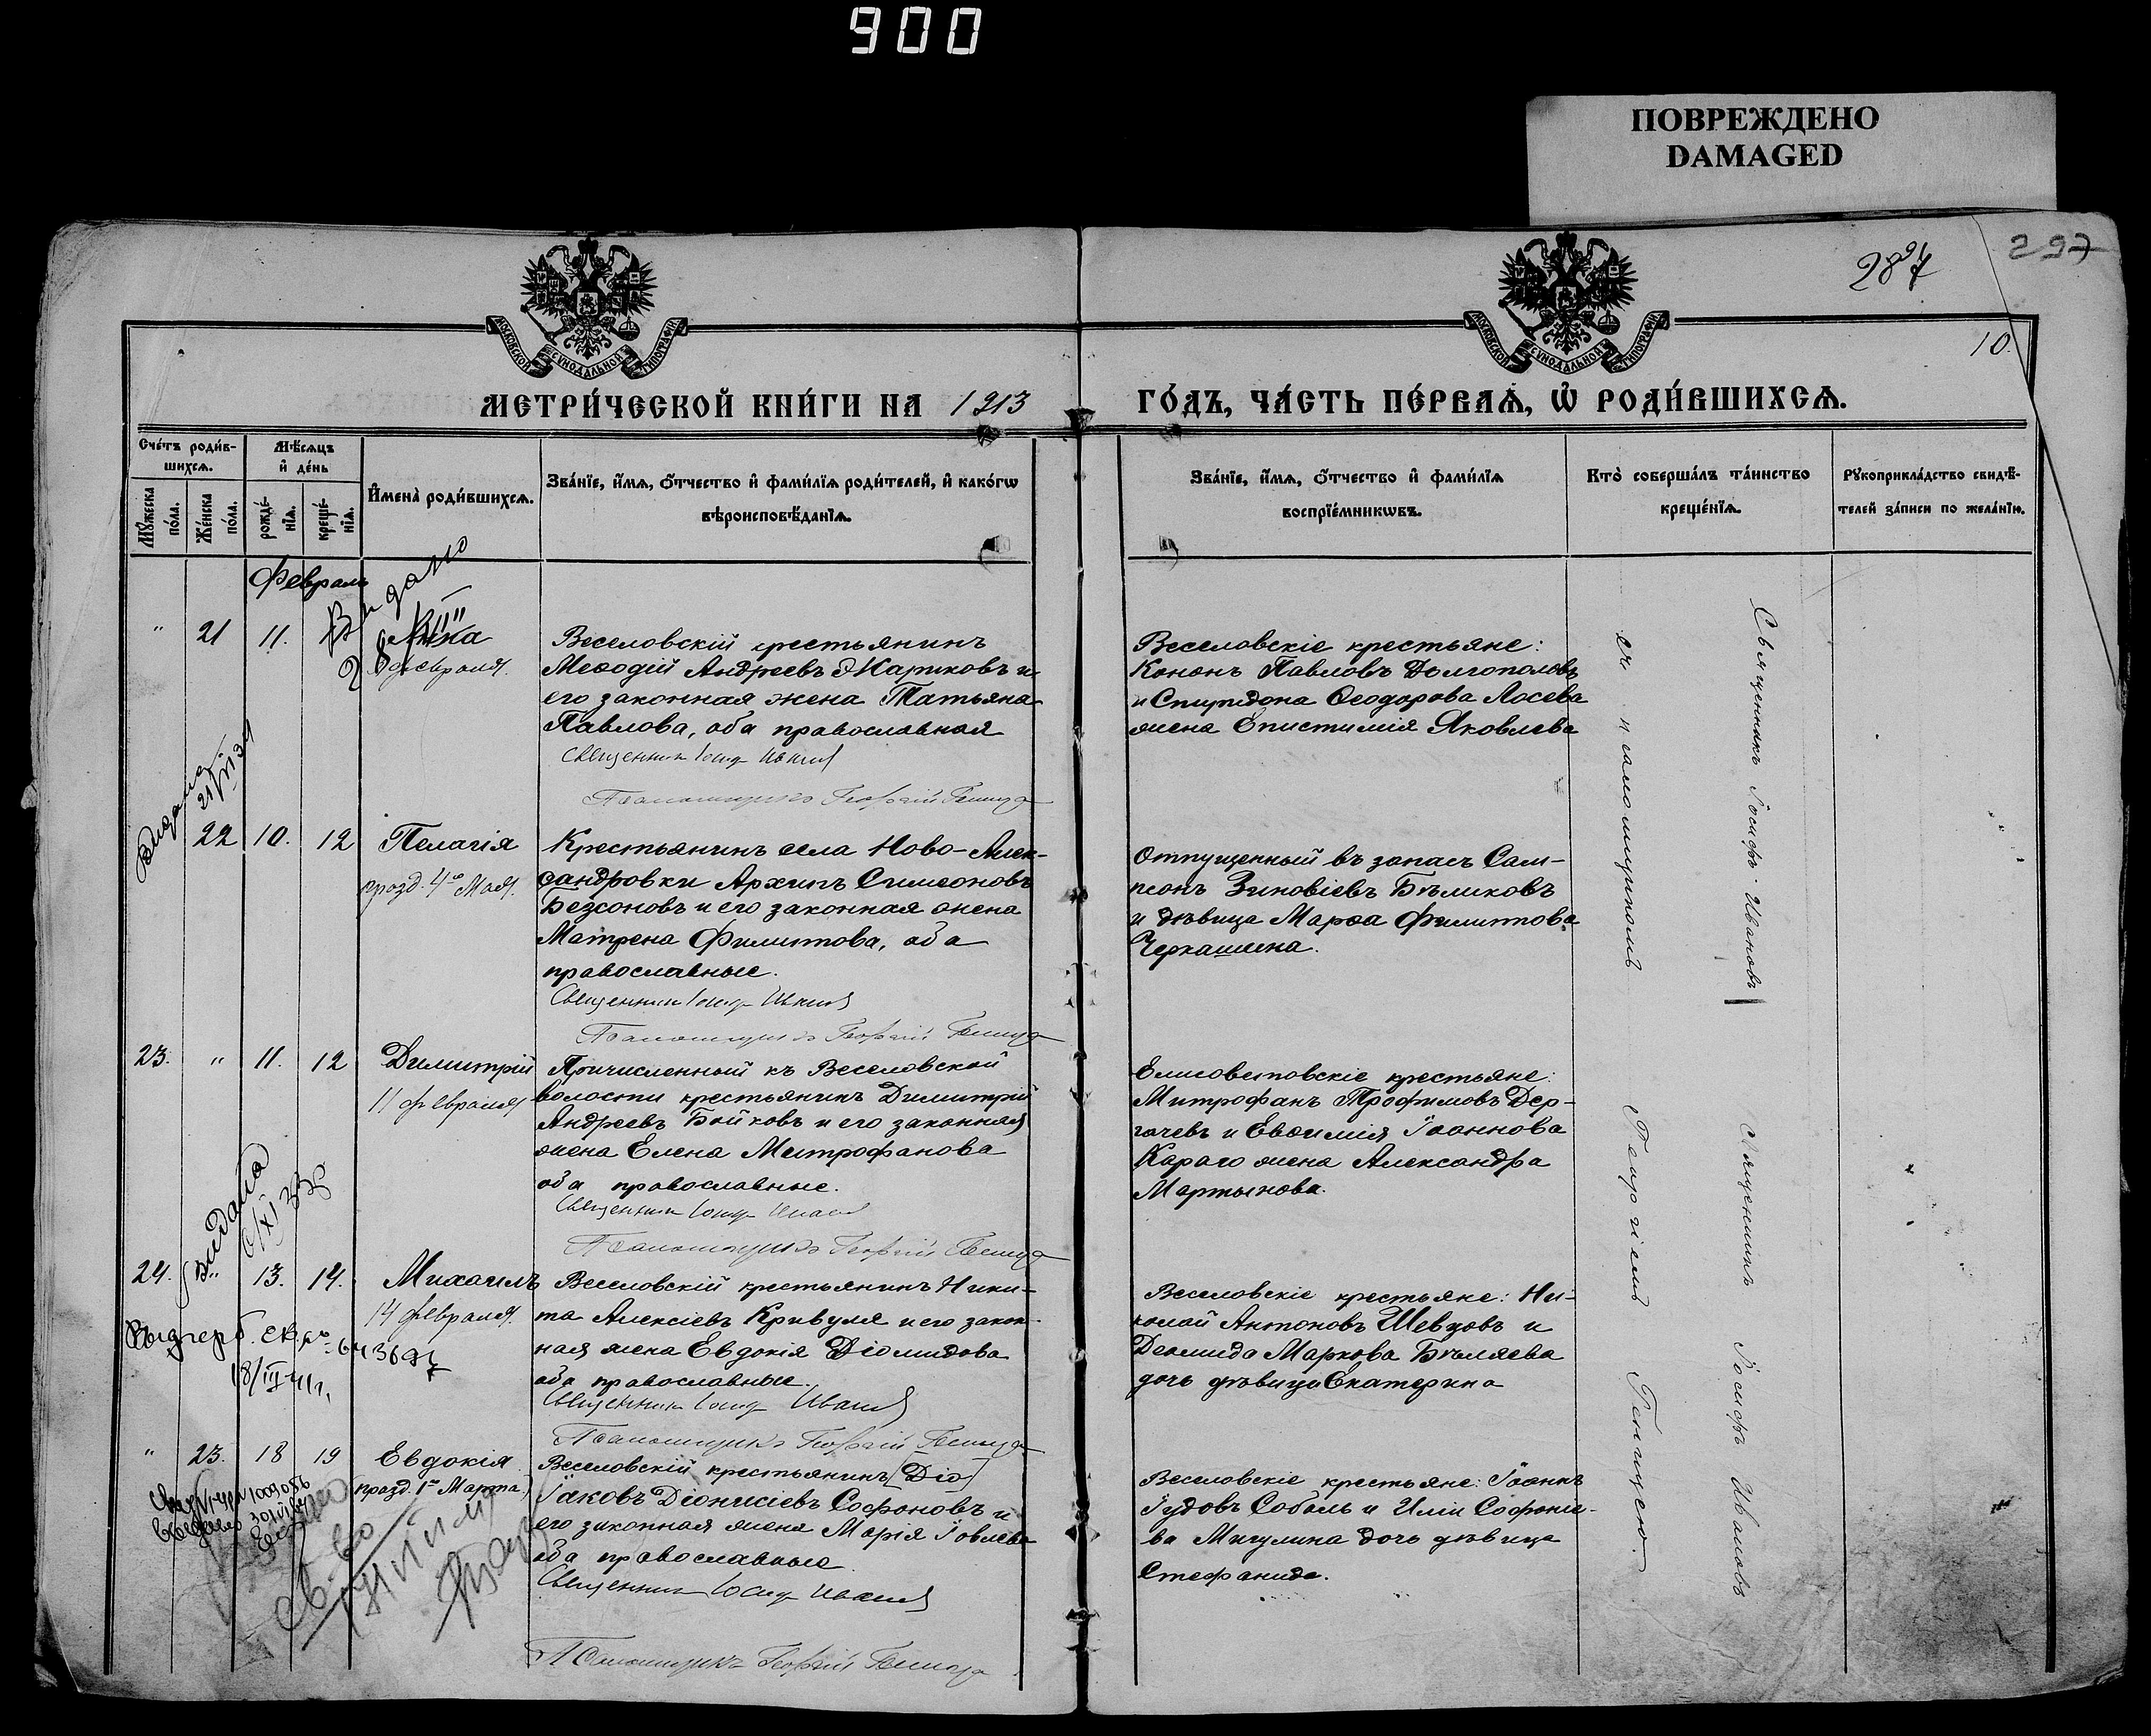 900
ПОВРЕЖДЕНО
DAMAGED
297
287
10.
МОСКОВСКОЙ СѴНОДАЛЬНОЙ ТИПОГРАФІИ
МОСКОВСКОЙ СѴНОДАЛЬНОЙ ТИПОГРАФІИ
МЕТРИ́ЧЕСКОЙ КНИ́ГИ НА 1913
ГО́ДЪ, ЧА́СТЬ ПЕ́РВАѦ, Ѡ҆ РОДИ́ВШИХСѦ.
Сче́тъ роди́в-
шихсѧ.
Мѣ́сѧцъ
и҆ де́нь
Мꙋ́жеска
по́ла.
Же́нска
по́ла.
рожде́-
нїѧ.
креще́-
нїѧ.
И҆мена̀ роди́вшихсѧ.
Зва́нїе, и҆́мѧ, ѻ҆́тчество и҆ фами́лїѧ роди́телей, и҆ како́гѡ
вѣроисповѣ́данїѧ.
Зва́нїе, и҆́мѧ, ѻ҆́тчество и҆ фами́лїѧ
воспрїе́мникѡвъ.
Кто̀ соверша́лъ та́инство
креще́нїѧ.
Рꙋкоприкла́дство свидѣ́-
телей за́писи по жела́нїю.
Февраль
Видано
" 21 11. Анна
февраля.
Веселовскій крестьянинъ
Меѳодій Андреевъ Жариковъ и
его законная жена Татьяна
Павлова, оба православная
Священникъ Іосифъ Ивановъ
Псаломщикъ Георгій
Веселовскіе крестьяне:
Кононъ Павловъ Долгополовъ
и Спиридона Ѳеодорова Лосева
жена Епистимія Яковлева
Видана
22 10. 12 Пелагія
празд. 4го Мая.
Крестьянинъ села Ново-Алек-
сандровки Архипъ Симеоновъ
Безсоновъ и его законная жена
Матрена Филиппова, оба
православные.
Священникъ Іосифъ Ивановъ
Псаломщикъ Георгій
Отпущенный въ запасъ Сам-
псонъ Зиновіевъ Бѣликовъ
и дѣвица Марѳа Филиппова
Черкашина.
23. " 11. 12 Димитрій
11 февраля
Причисленный къ Веселовской
волости крестьянинъ Димитрій
Андреевъ Бойковъ и его законная
жена Елена Митрофанова
оба православные.
Священникъ Іосифъ Ивановъ
Псаломщикъ Георгій
Елисоветовскіе крестьяне:
Митрофанъ Трофимовъ Дер-
гачевъ и Евѳимія Іоаннова
Караго жена Александра
Мартынова.
Видана
24. " 13. 14. Михаилъ
14 февраля.
Веселовскій крестьянинъ Ники-
та Алексіевъ Кривуля и его закон-
ная жена Евдокія Діомидова
оба православные.
Священникъ Іосифъ Ивановъ
Псаломщикъ Георгій
Веселовскіе крестьяне: Ни-
колай Антоновъ Шевцовъ и
Деомида Маркова Бѣляева
дочь дѣвица Екатерина
" 23. 18 19 Евдокія
(празд. 1го Марта.)
Веселовскій крестьянинъ [Діо]
Іаковъ Діонисіевъ Софоновъ и
его законная жена Марія Іовлева
оба православные
Священникъ Іосифъ Ивановъ
Псаломщикъ Георгій
Веселовскіе крестьяне: Іоаннъ
Іудовъ Соболь и Иліи Софоние-
ва Мигулина дочь дѣвица
Стефанида.
св-во
Священникъ Іосифъ Ивановъ
Священникъ Іосифъ Ивановъ
съ псаломщикомъ Георгіемъ